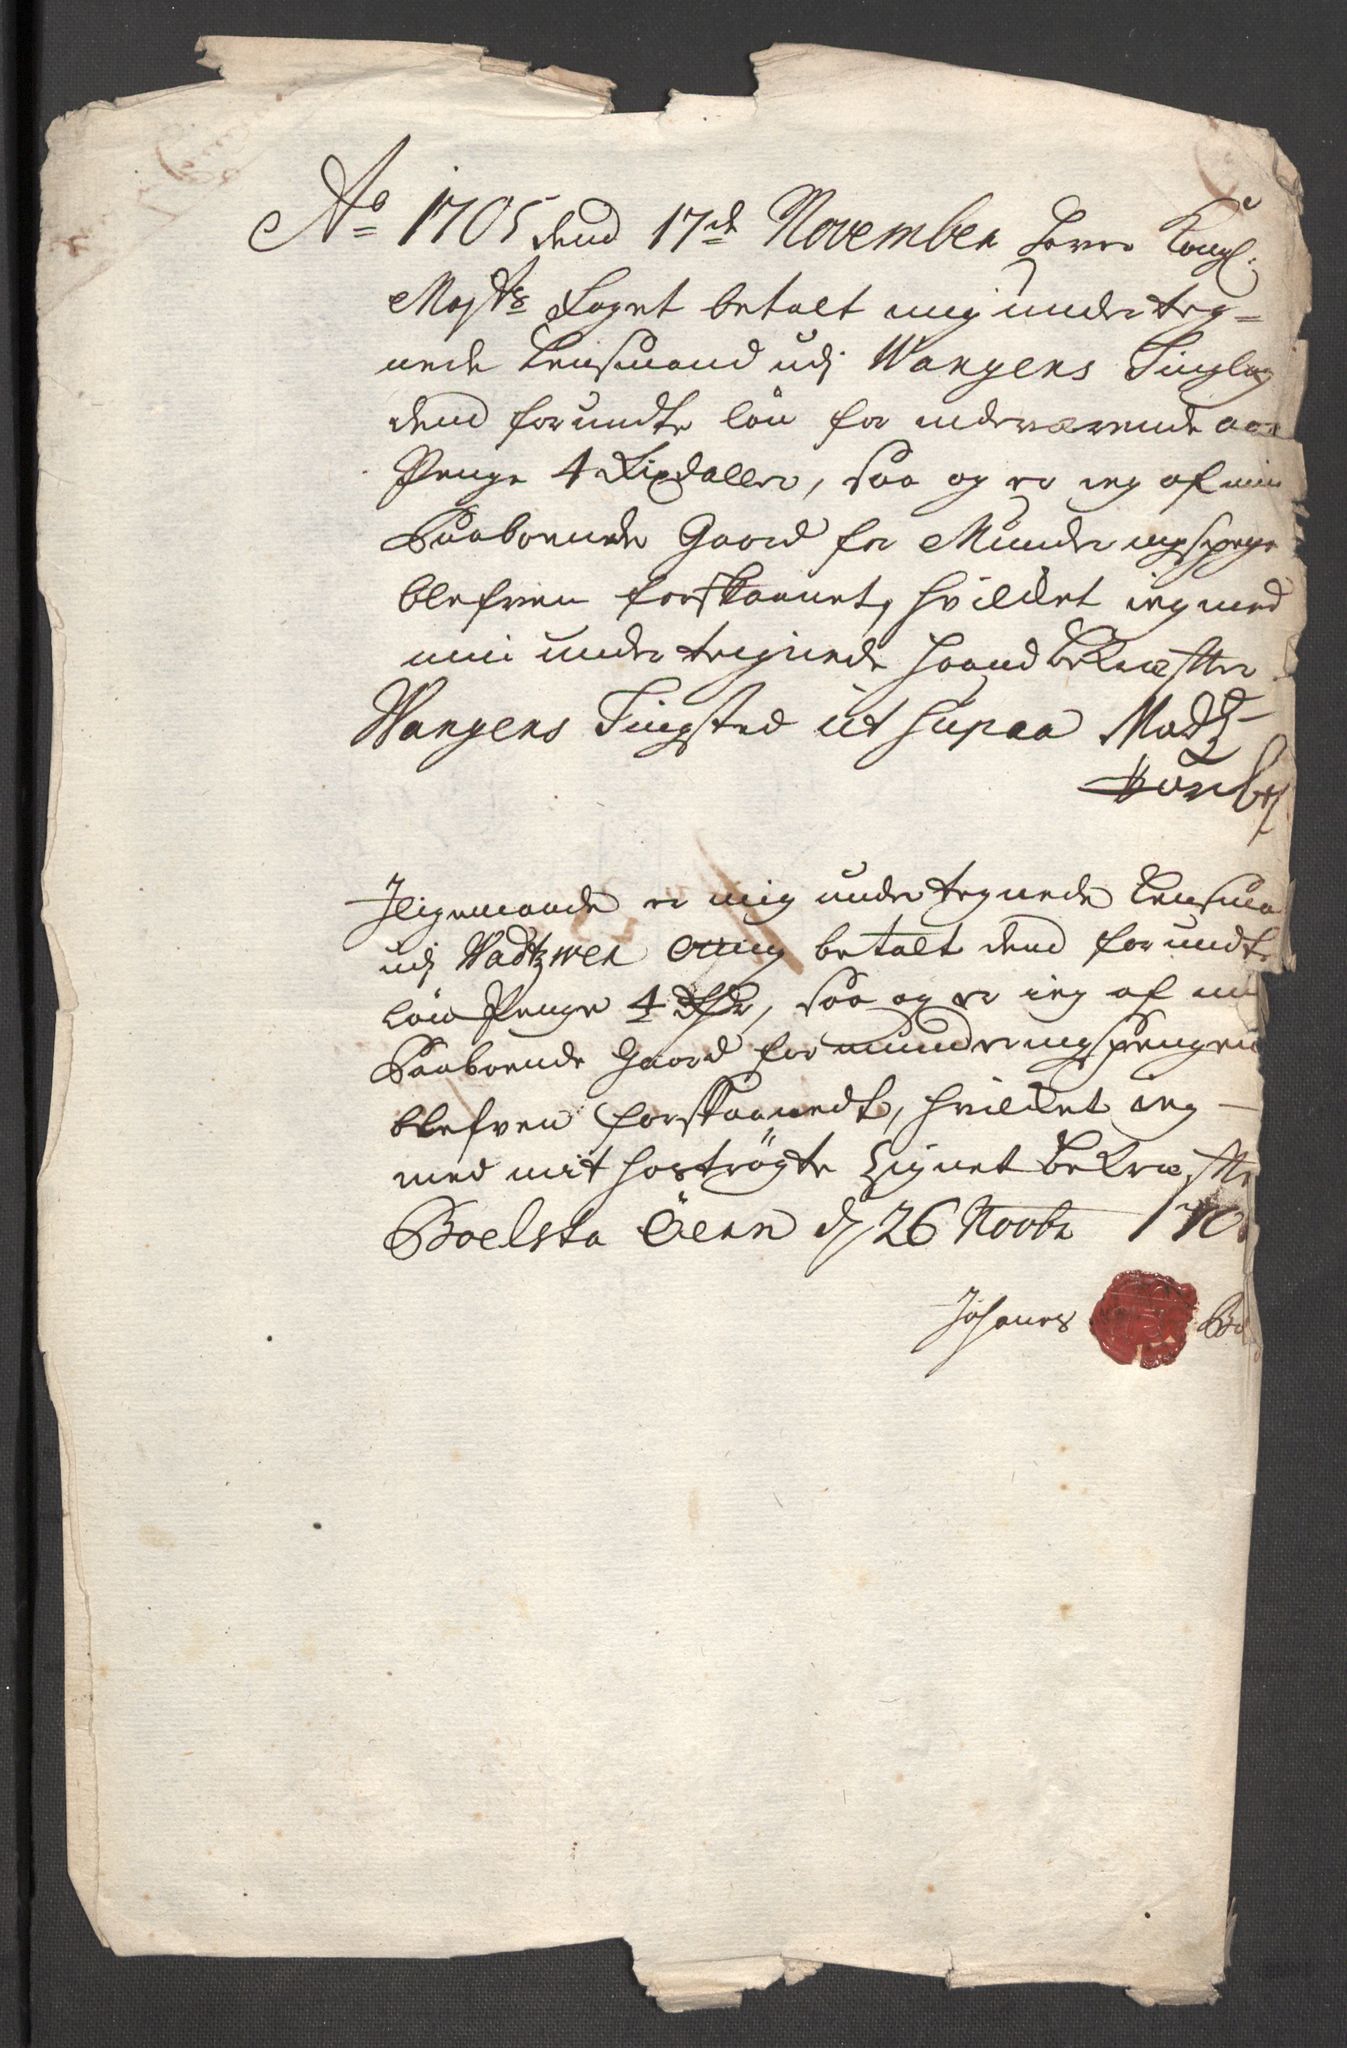 Ao 1705 dend 17de November haver Kongl:
Maytz Foget betalt mig underteg=
nede Lensmand udj Wangens Tinglag
dend forundte lön for indeværende aar
Penge 4 Rixdaller, saa og er ieg af min
Paaboende Gaard for Munderingspenge
blefven forskaanet, hvilcket ieg med
min undertegnede haand bekræffter
Wangens Tingsted ut supra Madtz
Jligemaade er mig undertegnede Lensma
udj betalt dend forundte
lön Penge 4 Rdr, saa og er ieg af min
Paaboende Gaard for munderingspengene
blefven forskaanedt, hvilcket ieg
med mit hoströgte Signet bekræffte
Boelsta Öeren d 26 Novbr 170
Johanes Bo